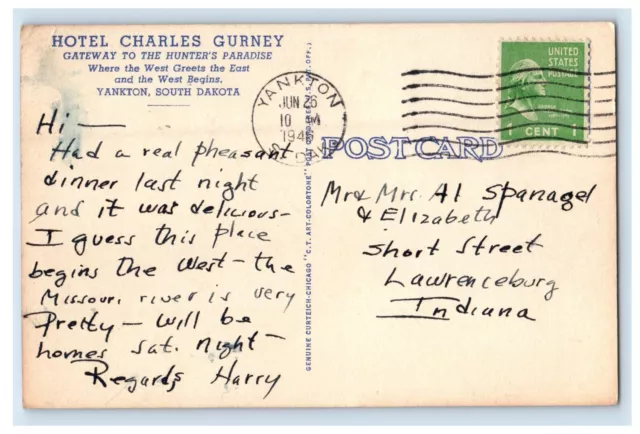 HOTEL CHARLES GURNEY
GATEWAY TO THE HUNTER'S PARADISE
Where the West Greets the East
and the West Begins.
YANKTON, SOUTH DAKOTA
Hi —
Had a real pheasant
dinner last night
and it was delicious-
I guess this place
begins the west - the
Missouri river is very
Pretty - will be
homes sat. night -
Regards Harry
GENUINE CURTEICH-CHICAGO "C.T. ART-COLORTONE" POST CARD
YANKTON
JUN 26
10 M
194
S. DAK.
UNITED
STATES
POSTAGE
1 CENT 1
POST CARD
Mr & Mrs. Al Spanagel
& Elizabeth
Short Street
Lawrenceburg
Indiana